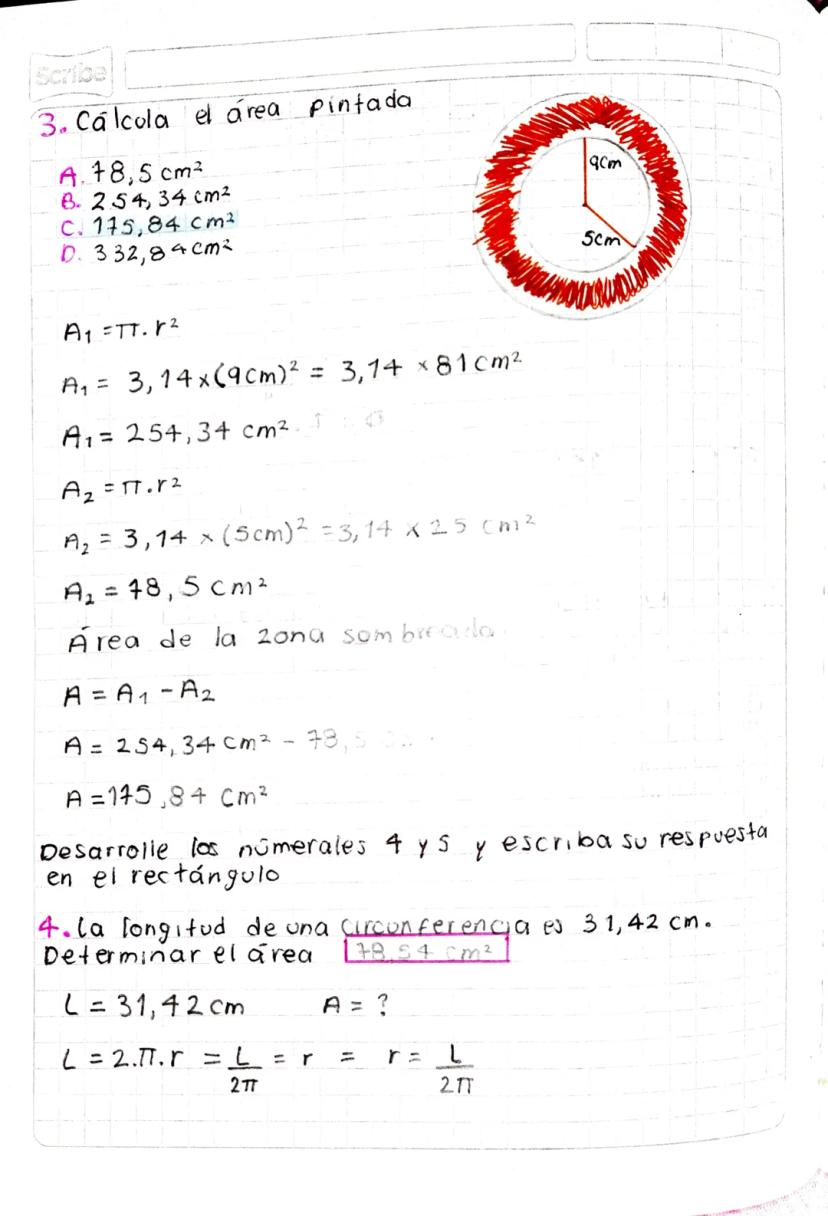 Scribe
3. Cálcula el área pintada
A. 78,5 cm²
B. 254,34 cm²
C. 175,84 cm²
D. 332,84 cm²
9cm
5cm
A₁ = π.r²
A₁ = 3,14 x (9cm)² = 3,14 x 81 cm²
A₁ = 254,34 cm²
A₂ = π.r²
A₂ = 3,14 x (5cm)² = 3,14 x 25 cm²
A₂ = 78,5 cm²
Área de la zona sombreada
A = A₁ - A₂
A = 254,34 cm² - 78,5
A = 175,84 cm²
Desarrolle los númerales 4 y 5 y escriba su respuesta
en el rectángulo
4. la longitud de una circunferencia es 31,42 cm.
Determinar el área 78,54 cm²
L = 31,42 cm A = ?
L = 2.π.r = L/2π = r = r = L/2π